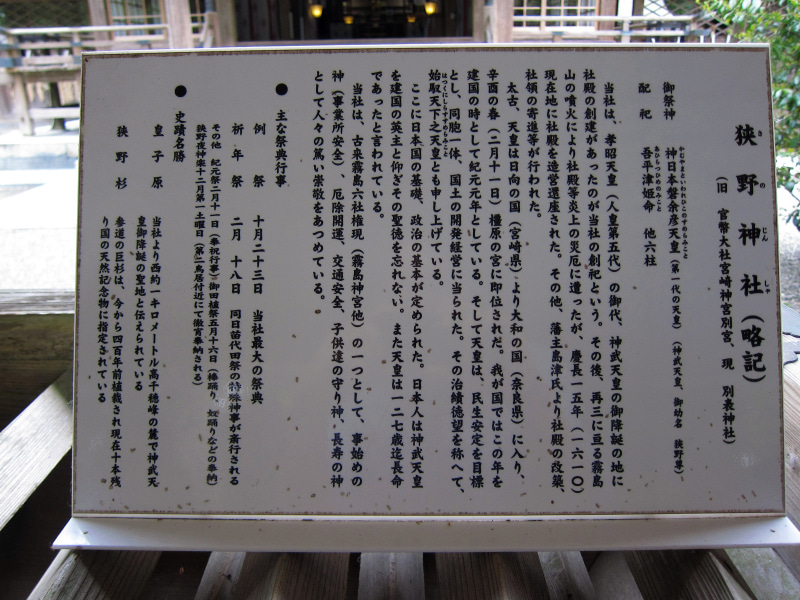 狭野神社（略記）
さのじんしゃ
（旧 官幣大社宮崎神宮別宮、現 別表神社）
御祭神
神日本磐余彦天皇（第一代の天皇）（神武天皇、御幼名 狭野尊）
かむやまといわれひこのすめらみこと
配祀
吾平津姫命 他六柱
あひらつひめのみこと
当社は、孝昭天皇（人皇第五代）の御代、神武天皇の御降誕の地に
社殿の創建があったのが当社の創祀という。その後、再三に亘る霧島
山の噴火により社殿等炎上の災厄に遭ったが、慶長一五年（一六一〇）
現在地に社殿を造営還座された。その他、藩主島津氏より社殿の改築、
社領の寄進等が行われた。
太古、天皇は日向の国（宮崎県）より大和の国（奈良県）に入り、
辛酉の春（二月十一日）橿原の宮に即位された。我が国ではこの年を
建国の時として紀元元年としている。そして天皇は、民生安定を目標
とし、同胞一体、国土の開発経営に当られた。その治績徳望を称へて、
始馭天下之天皇とも申し上げている。
はつくにしらすすめらみこと
ここに日本国の基礎、政治の基本が定められた。日本人は神武天皇
を建国の英主と仰ぎその聖徳を忘れない。また天皇は一二七歳迄長命
であったと言われている。
当社は、古来霧島六社権現（霧島神宮他）の一つとして、事始めの
神（事業所安全）、厄除開運、交通安全、子供達の守り神、長寿の神
として人々の篤い崇敬をあつめている。
●主な祭典行事
例祭 十月二十三日 当社最大の祭典
祈年祭 二月 十八日 同日苗代田祭の特殊神事が斎行される
その他 紀元祭二月十一日（奉祝行事）御田植祭五月十六日（棒踊り、奴踊りなどの奉納）
狭野夜神楽十二月第一土曜日（第二鳥居付近にて徹宵奉納される）
●史蹟名勝
皇子原 当社より西約一キロメートル高千穂峰の麓で神武天
皇御降誕の聖地と伝えられている
狭野杉 参道の巨杉は、今から四百年前植栽され現在十本残
り国の天然記念物に指定されている